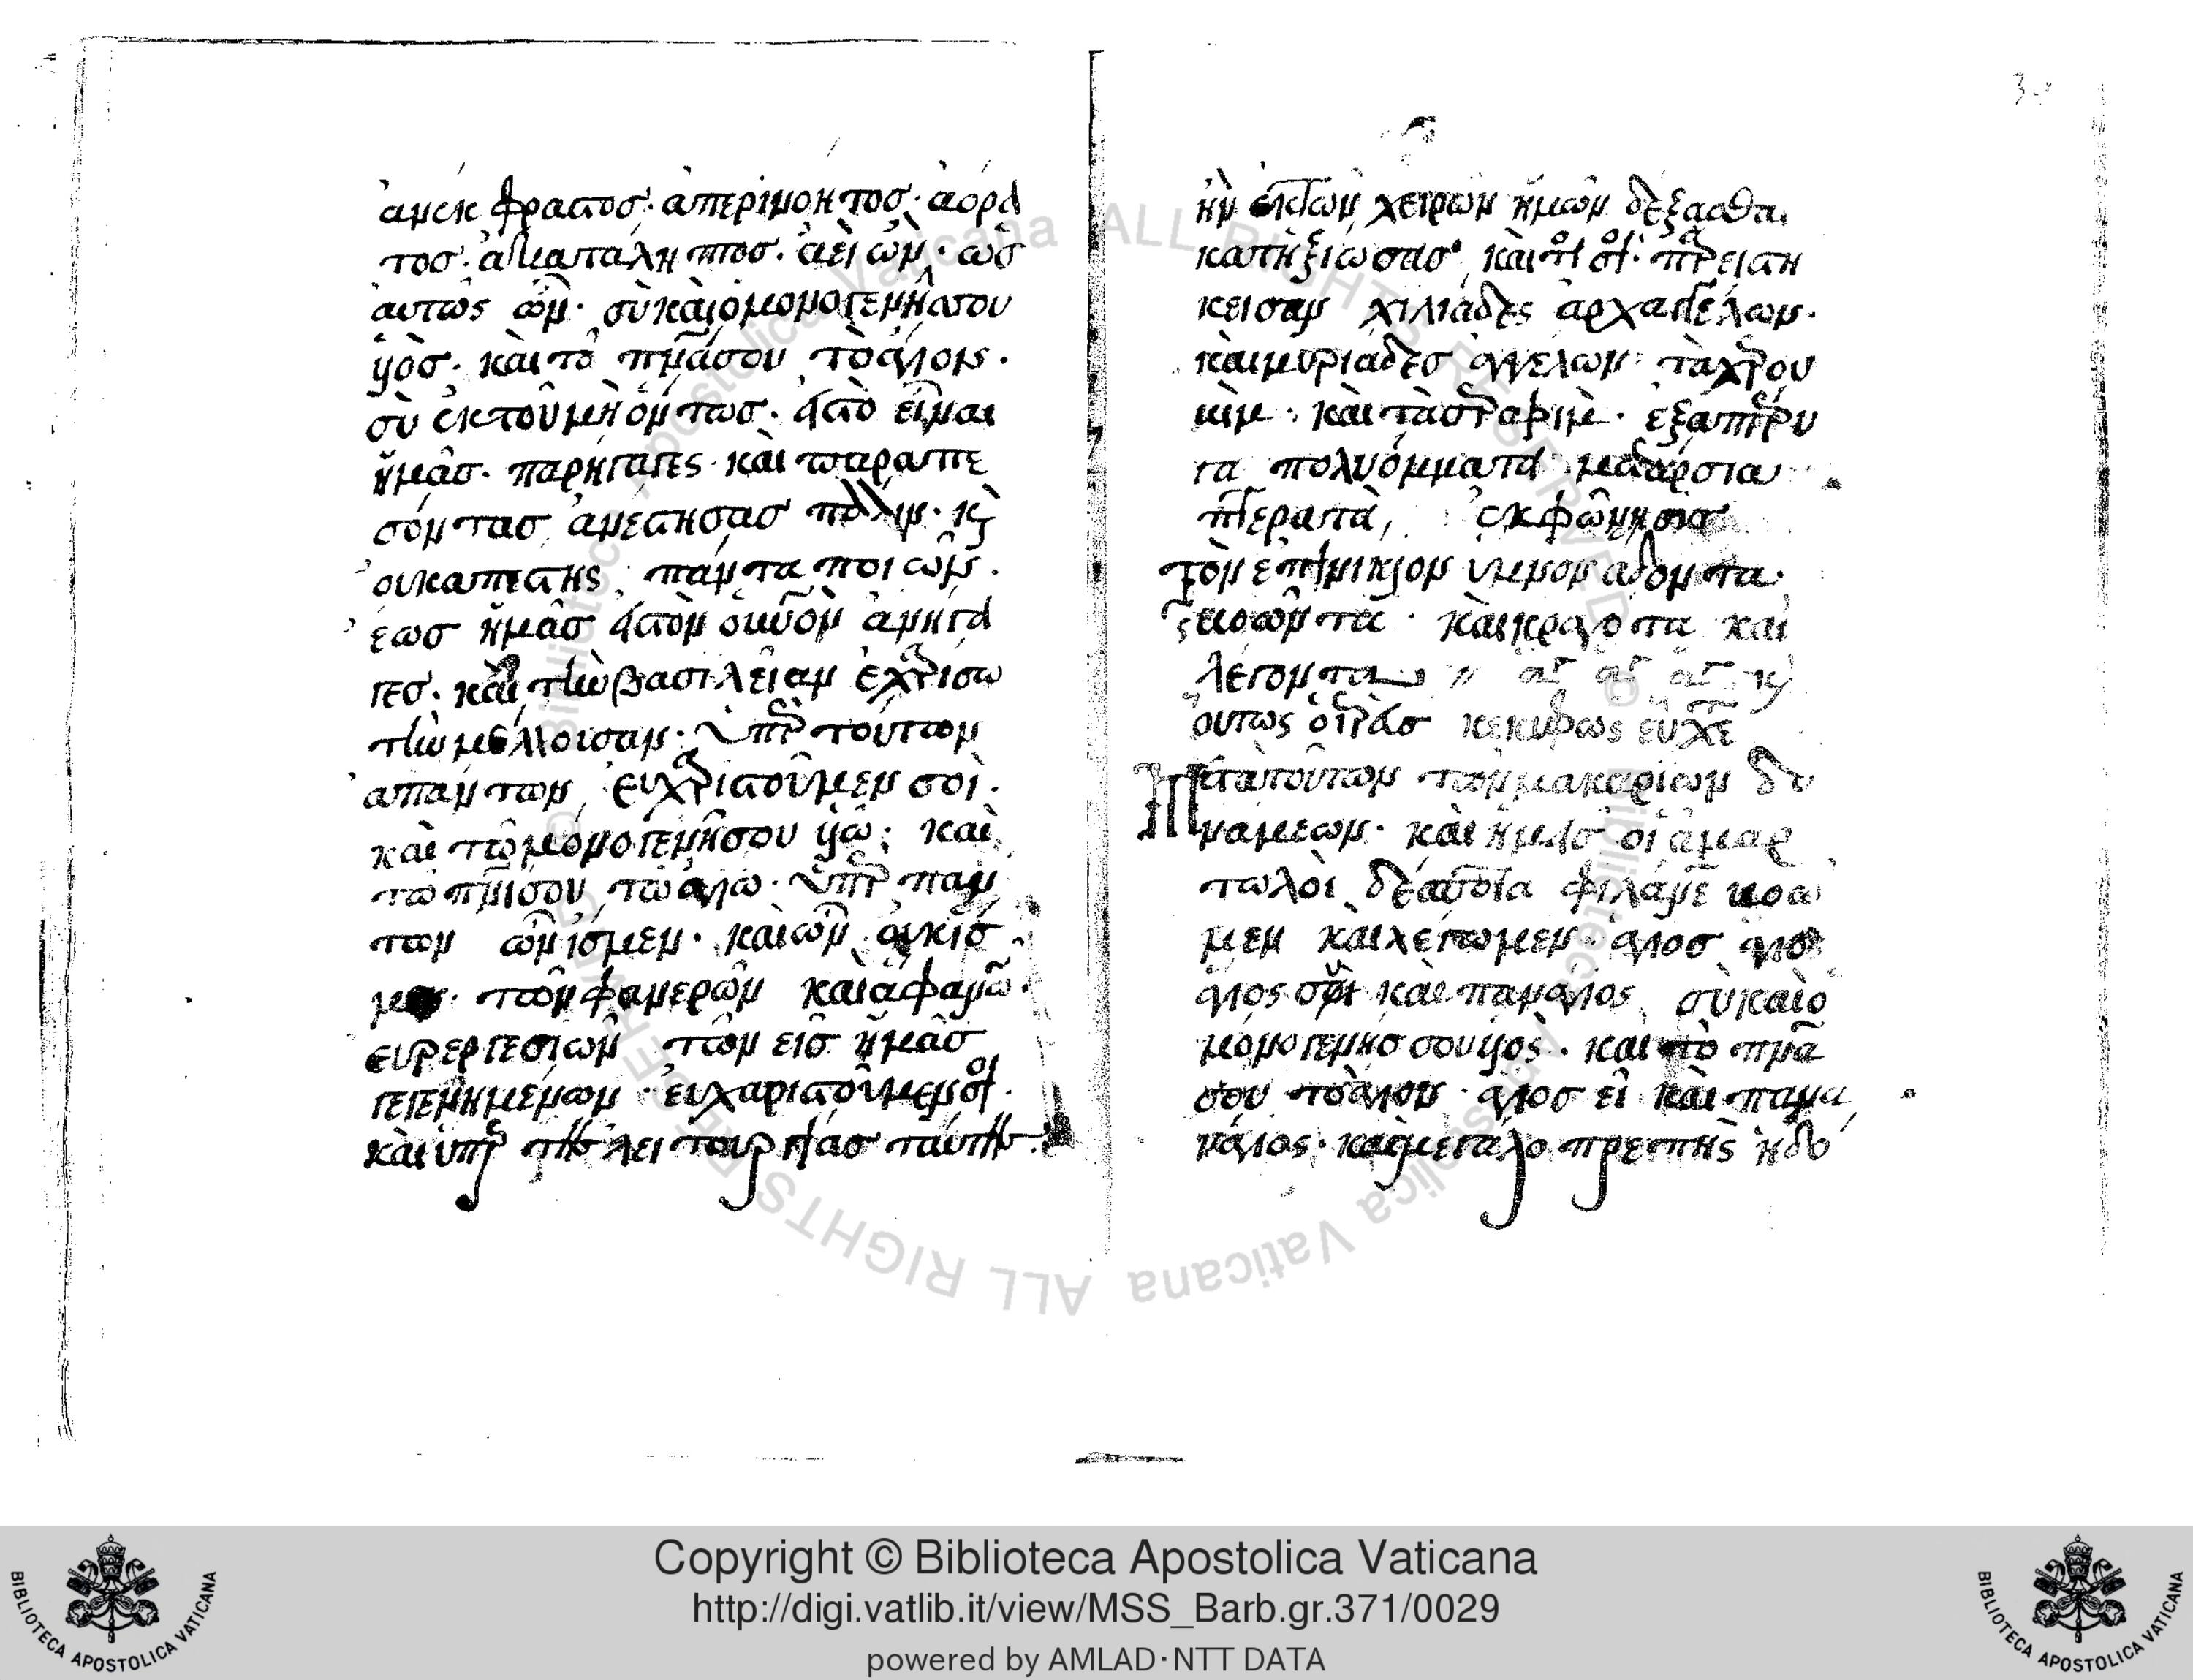 ἀνεκφραστος· ἀπερινόητος· ἀόρα
τος· ἀκαταληπτος. ἀεὶ ὢν· ὡσ
αυτῶς ὢν· σὺ καὶ ὁ μονογενήσ σου
υἱὸσ· καὶ τὸ πνᾶ σου τὸ ἅγιον·
σὺ ἐκ τοῦ μὴ ὄντωσ· εἰς τὸ εἶναι
ἡμᾶσ· παρήγαγες· καὶ παραπε
σόντασ ἀνεστησασ πάλιν· κ
ουκ απεστης πάντα ποιῶν·
ἕωσ ἡμᾶσ εἰς τὸν οὐνὸν ἀνήγα
γεσ· καὶ τὴν βασιλείαν ἐχαρίσω
τὴν μέλλουσαν· ὑπὲρ τούτων
απάντων εὐχαριστοῦμεν σοὶ·
καὶ τῶ μονογενῆ σου υἱῶ· καὶ
τῶ πνι σου τῶ ἁγίω· ὑπὲρ παν
των ὧν ἴσμεν· καὶ ὧν οὐκ ἴσ
μεν· τῶν φανερῶν καὶ ἀφανῶ
ευεργεσιῶν τῶν εἰσ ἡμᾶσ
γεγενημένων· εὐχαριστοῦμεν σοι·
καὶ ὑπὲρ τῆς λειτουργίασ ταύτης·
ἣν ἐκ τῶν χειρῶν ἡμῶν δέξασθαι
κατηξίωσασ· καὶ τοι σοι· παρειστή
κεισαν χιλιάδες ἀρχαγγέλων·
καὶ μυριάδεσ αγγέλων· τὰ χερου
βὶμ· καὶ τὰ σεραφὶμ· ἑξαπτέρυ
γα πολυόμματα μετάρσια
πτερωτὰ, ἐκφώνησισ
τὸν ἐπινίκιον ὕμνον αδοντα·
βοῶντα· καὶ κραγοτα καὶ
λέγοντα αγ αγ αγ κς
ουτως ὁ ἱερεύσ κεκυφως εὔχε
Μετὰ τούτων τῶν μακαρίων δυ
νάμεων· καὶ ἡμεῖσ οἱ ἁμαρ
τωλοὶ δέσποτα φιλάνε βοῶ
μεν καὶ λέγωμεν· αγιοσ αγιοσ
άγιος εἶ καὶ πανάγιος, σὺ καὶ ὁ
μονογενήσ σου υἱὸς· καὶ τὸ πνᾶ
σου τὸ ἅγιον· ἅγιοσ εἶ καὶ πανα
νάγιος· καὶ μεγαλοπρεπὴς ἡ δο
Copyright © Biblioteca Apostolica Vaticana
http://digi.vatlib.it/view/MSS_Barb.gr.371/0029
powered by AMLAD·NTT DATA